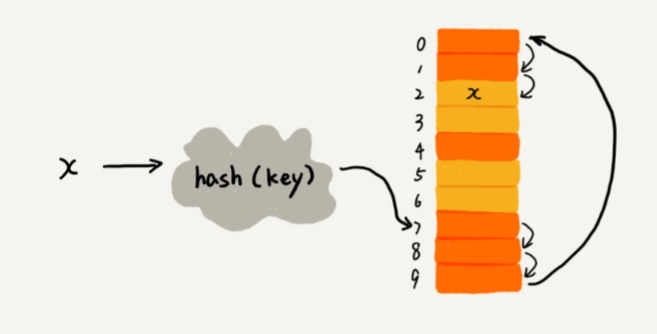 x
hash (key)
0
1
2 x
3
4
5
6
7
8
9